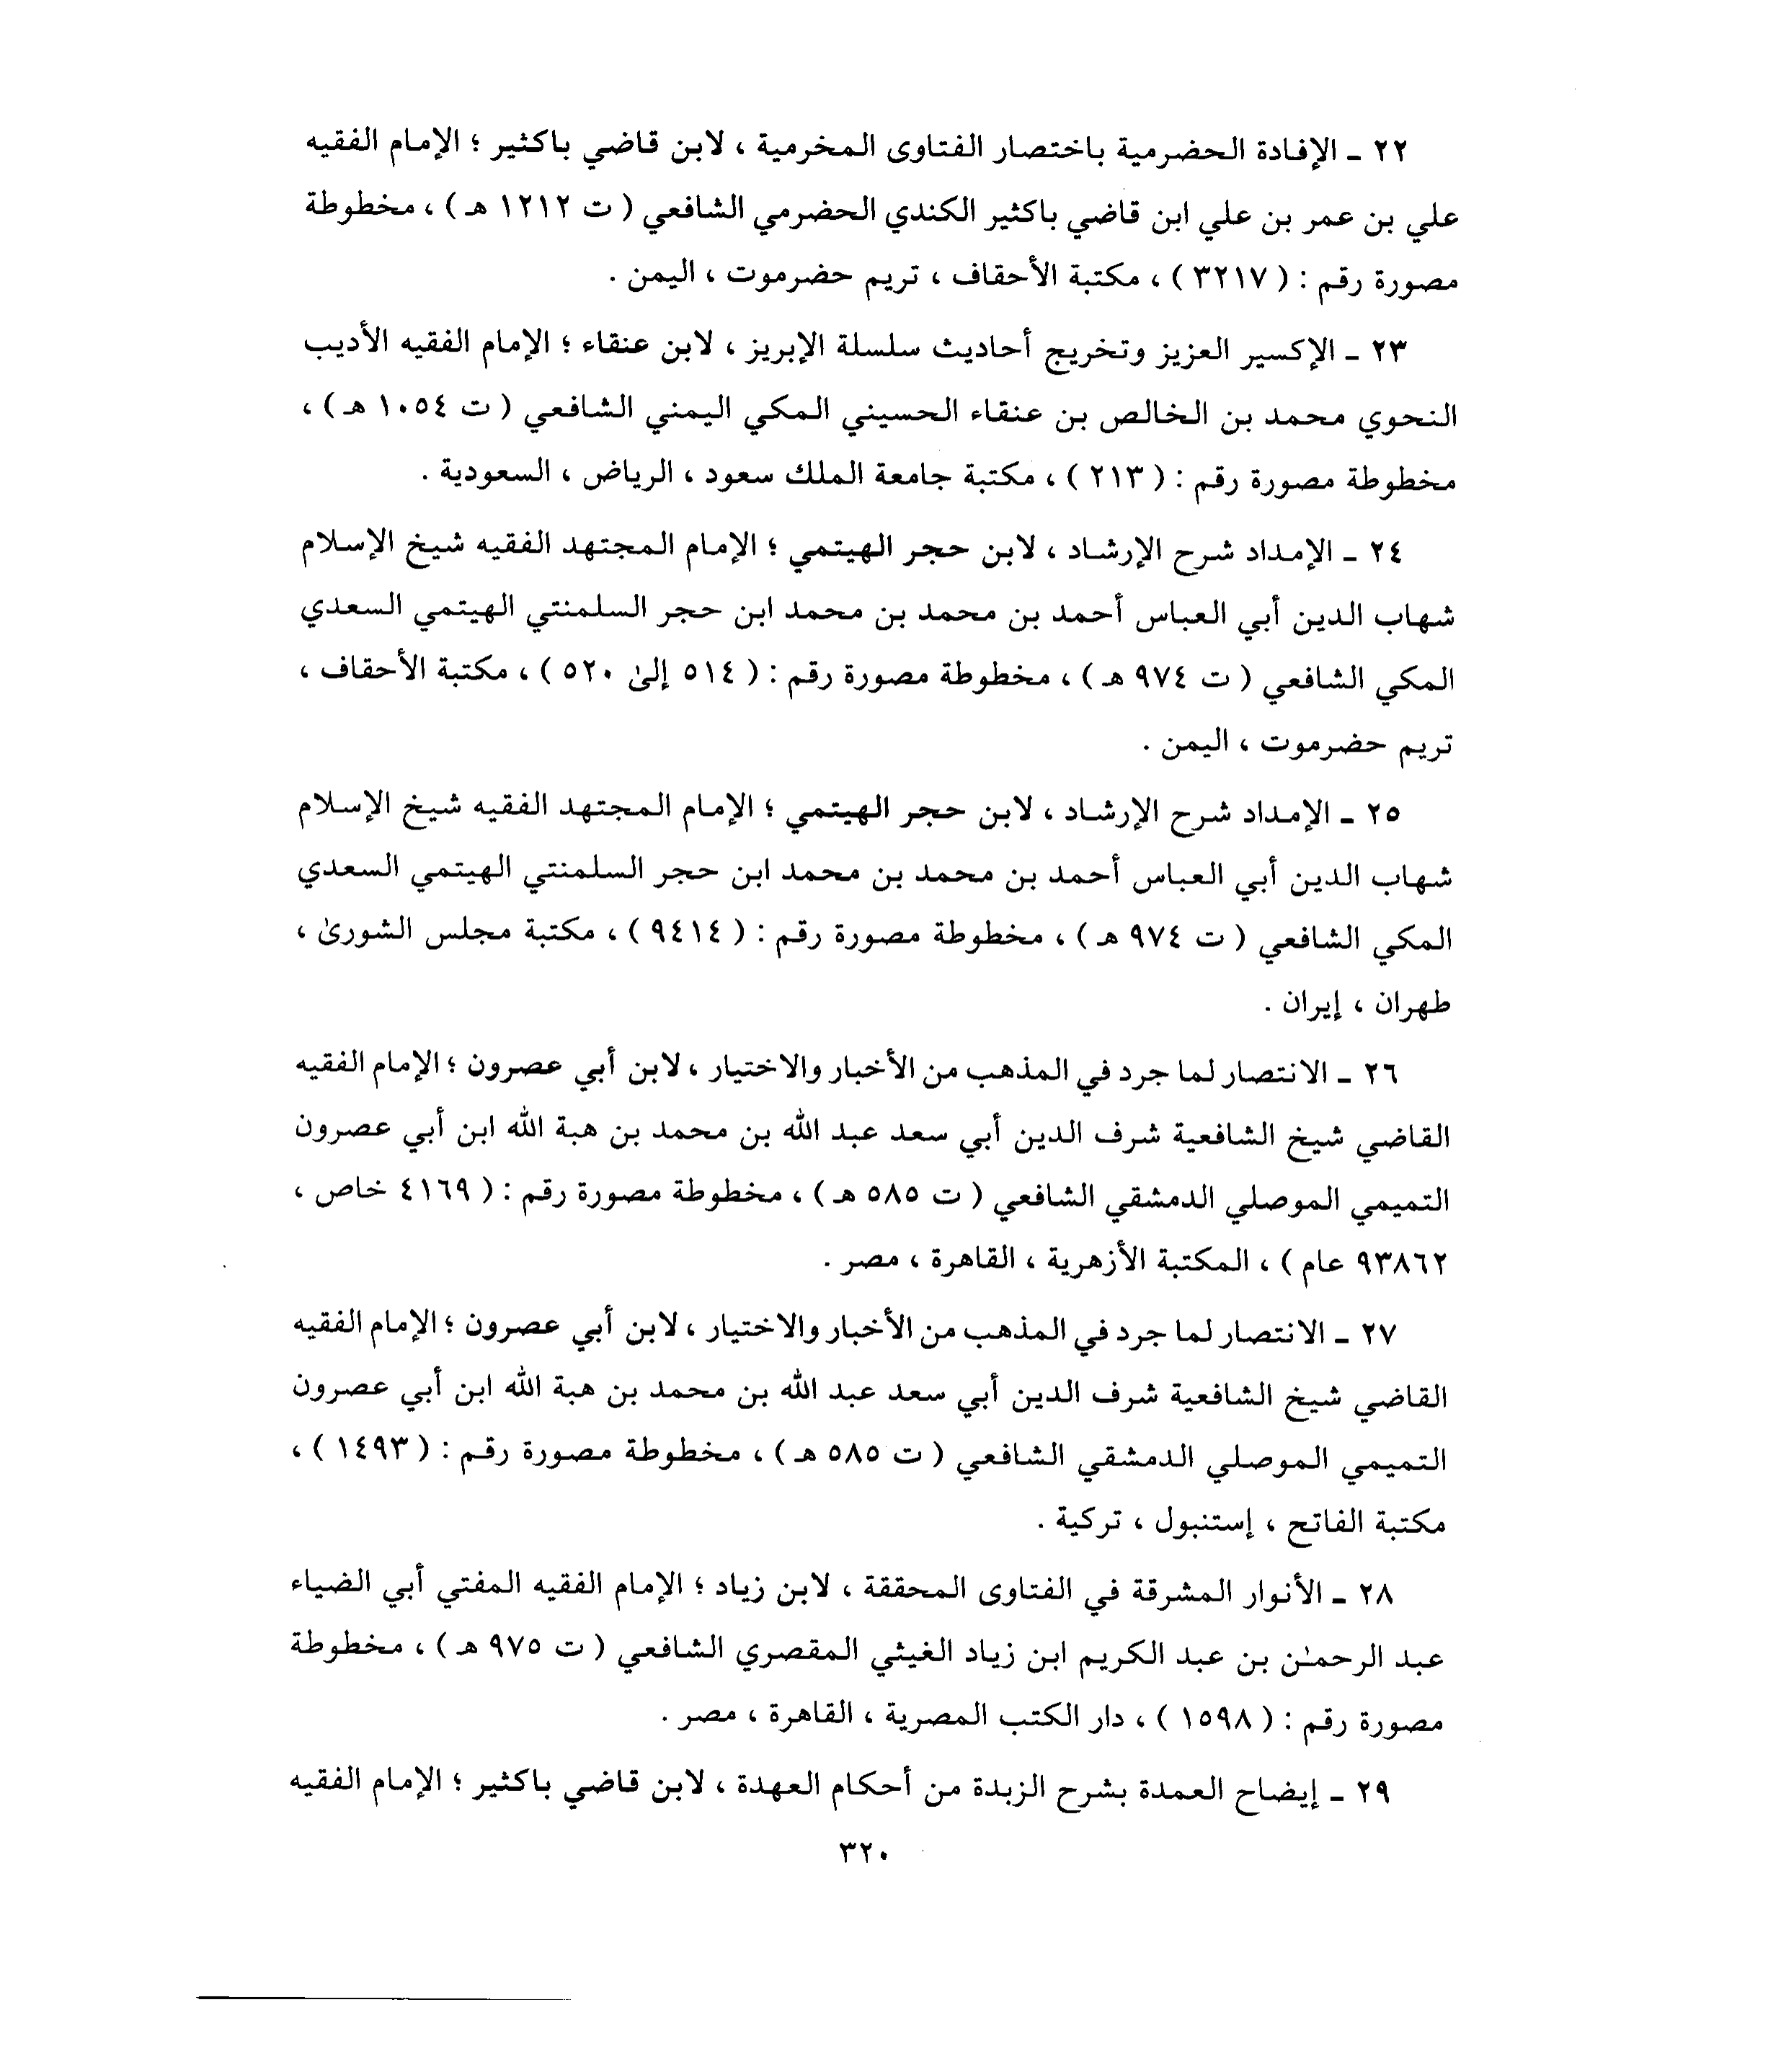 ٢٢ ـ الإفادة الحضرمية باختصار الفتاوى المخرمية ، لابن قاضي باكثير ؛ الإمام الفقيه
علي بن عمر بن علي ابن قاضي باكثير الكندي الحضرمي الشافعي ( ت ١٢١٢ هـ ) ، مخطوطة
مصورة رقم : ( ٣٢١٧ ) ، مكتبة الأحقاف ، تريم حضرموت ، اليمن .
٢٣ ـ الإكسير العزيز وتخريج أحاديث سلسلة الإبريز ، لابن عنقاء ؛ الإمام الفقيه الأديب
النحوي محمد بن الخالص بن عنقاء الحسيني المكي اليمني الشافعي ( ت ١٠٥٤ هـ ) ،
مخطوطة مصورة رقم : ( ٢١٣ ) ، مكتبة جامعة الملك سعود ، الرياض ، السعودية .
٢٤ ـ الإمداد شرح الإرشاد ، لابن حجر الهيتمي ؛ الإمام المجتهد الفقيه شيخ الإسلام
شهاب الدين أبي العباس أحمد بن محمد بن محمد ابن حجر السلمنتي الهيتمي السعدي
المكي الشافعي ( ت ٩٧٤ هـ ) ، مخطوطة مصورة رقم : ( ٥١٤ إلىٰ ٥٢٠ ) ، مكتبة الأحقاف ،
تريم حضرموت ، اليمن .
٢٥ ـ الإمداد شرح الإرشاد ، لابن حجر الهيتمي ؛ الإمام المجتهد الفقيه شيخ الإسلام
شهاب الدين أبي العباس أحمد بن محمد بن محمد ابن حجر السلمنتي الهيتمي السعدي
المكي الشافعي ( ت ٩٧٤ هـ ) ، مخطوطة مصورة رقم : ( ٩٤١٤ ) ، مكتبة مجلس الشورىٰ ،
طهران ، إيران .
٢٦ ـ الانتصار لما جرد في المذهب من الأخبار والاختيار ، لابن أبي عصرون ؛ الإمام الفقيه
القاضي شيخ الشافعية شرف الدين أبي سعد عبد الله بن محمد بن هبة الله ابن أبي عصرون
التميمي الموصلي الدمشقي الشافعي ( ت ٥٨٥ هـ ) ، مخطوطة مصورة رقم : ( ٤١٦٩ خاص ،
٩٣٨٦٢ عام ) ، المكتبة الأزهرية ، القاهرة ، مصر .
٢٧ ـ الانتصار لما جرد في المذهب من الأخبار والاختيار ، لابن أبي عصرون ؛ الإمام الفقيه
القاضي شيخ الشافعية شرف الدين أبي سعد عبد الله بن محمد بن هبة الله ابن أبي عصرون
التميمي الموصلي الدمشقي الشافعي ( ت ٥٨٥ هـ ) ، مخطوطة مصورة رقم : ( ١٤٩٣ ) ،
مكتبة الفاتح ، إستنبول ، تركية .
٢٨ ـ الأنوار المشرقة في الفتاوى المحققة ، لابن زياد ؛ الإمام الفقيه المفتي أبي الضياء
عبد الرحمـٰن بن عبد الكريم ابن زياد الغيثي المقصري الشافعي ( ت ٩٧٥ هـ ) ، مخطوطة
مصورة رقم : ( ١٥٩٨ ) ، دار الكتب المصرية ، القاهرة ، مصر .
٢٩ ـ إيضاح العمدة بشرح الزبدة من أحكام العهدة ، لابن قاضي باكثير ؛ الإمام الفقيه
٣٢٠